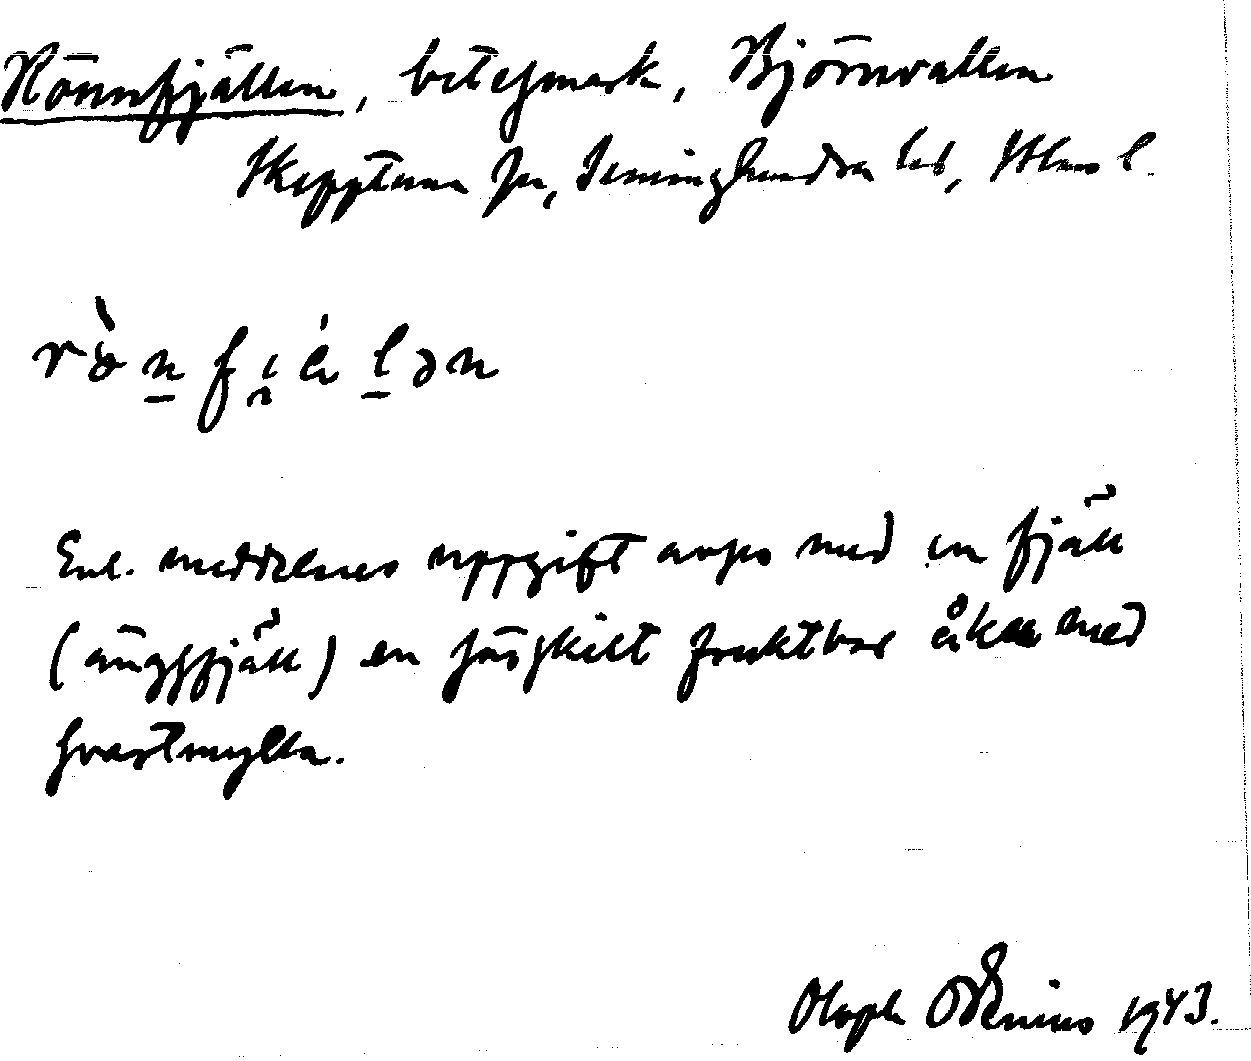 Rönnfjällen, betesmark, Björnvallen
Skepptuna sn, Seminghundra hd, Sthms l.
Enl. meddelares uppgift avses med en fjäll
(ängsfjäll) en särskilt fruktbar åker med
svartmylla.
Oloph Odenius 1943.